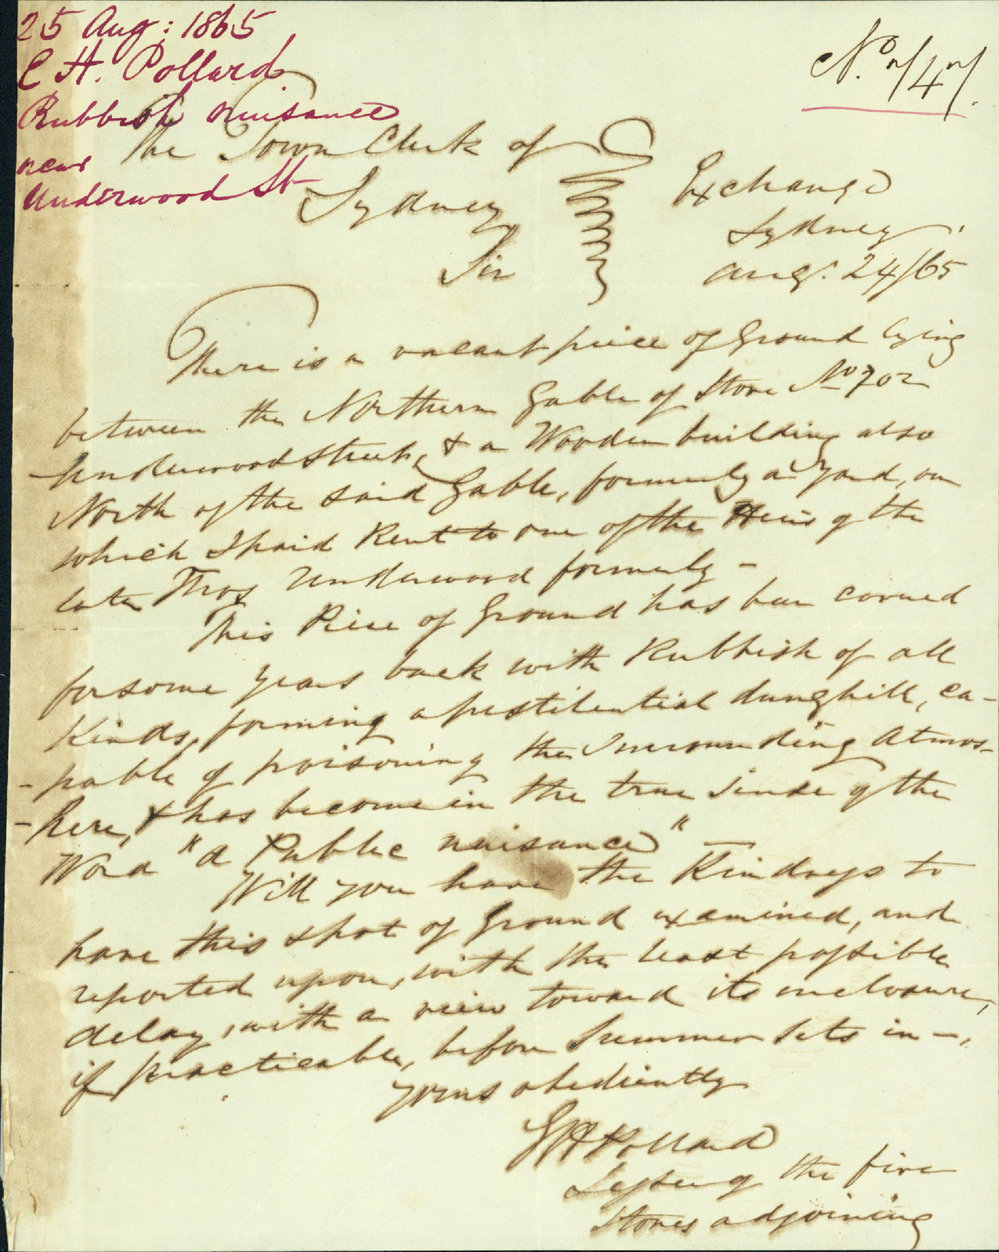 25 Aug: 1865
C H. Pollard
Rubbish nuisance
near
Underwood St
No. 747.
The Town Clerk of
Sydney
Exchange
Sydney.
Aug: 24/65
Sir
There is a vacant piece of Ground lying
between the Northern Gable of Store No 702
Underwood Street, & a Wooden building also
North of the said Gable, formerly a Yard, on
which I paid Rent to one of the Heirs of the
late Thos Underwood formerly -
This Piece of Ground has been covered
for some years back with Rubbish of all
Kinds, forming a pestilential dunghill, ca-
-pable of poisoning the Surrounding Atmos-
-phere, & has become in the true Sense of the
Word "a Public nuisance"
Will you have the Kindness to
have this spot of Ground examined, and
reported upon, with the least possible
delay, with a view toward its inclosure,
if practicable, before Summer sets in -.
Yours obediently
Pollard
of the five
Stores adjoining